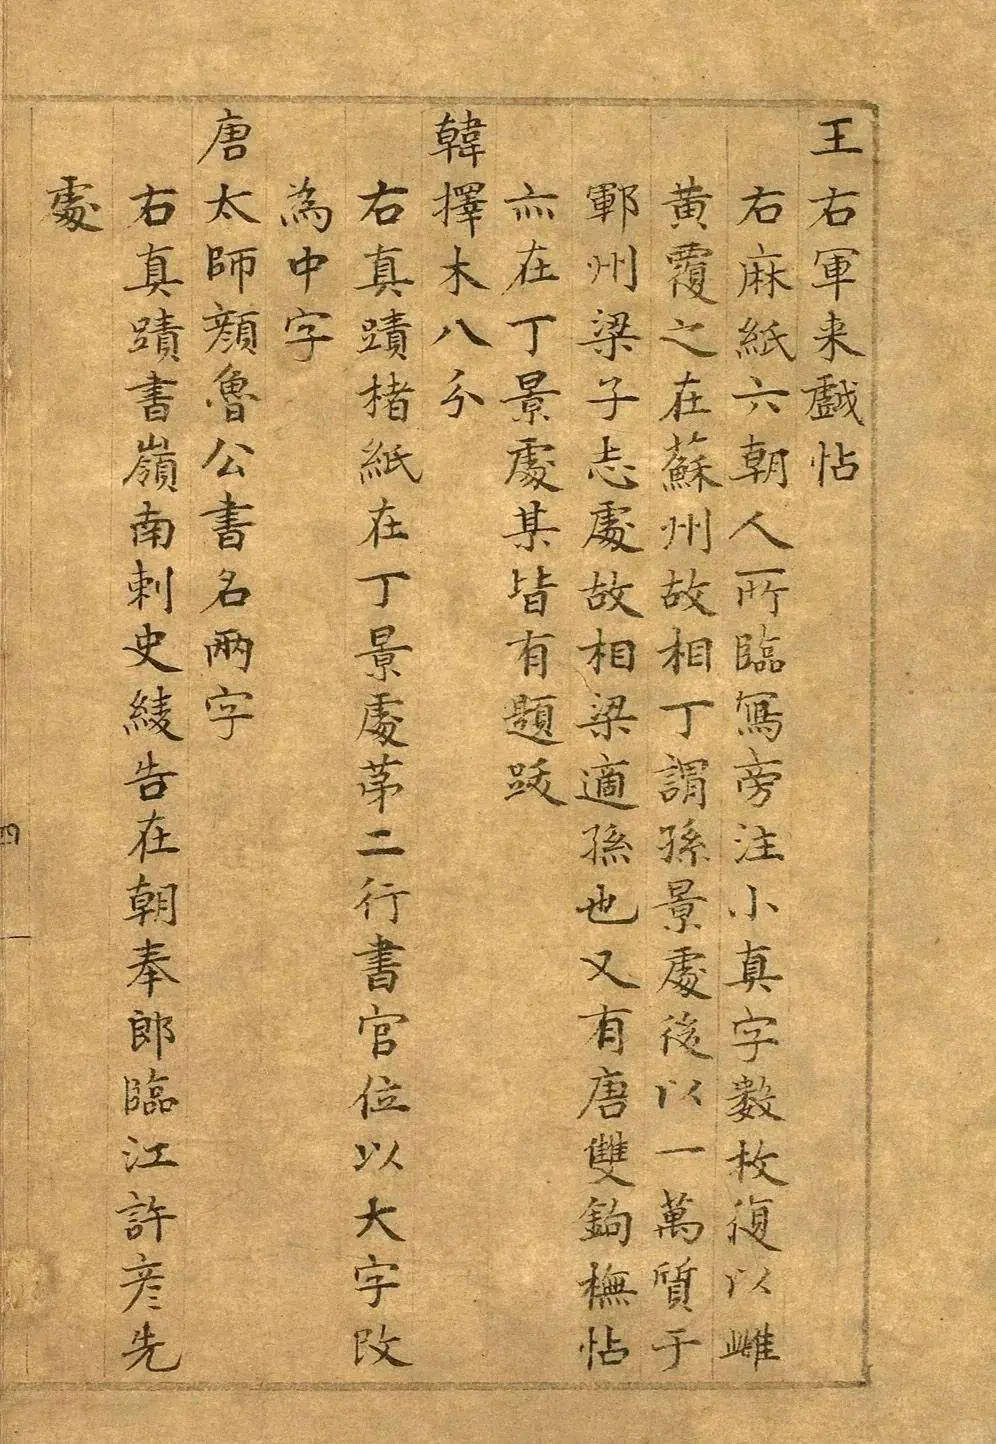 王右軍来戲帖
右麻紙六朝人所臨寫旁注小真字數枚復以雌
黃覆之在蘇州故相丁謂孫景處後以一萬質于
鄆州梁子志處故相梁適孫也又有唐雙鉤橅帖
亦在丁景處某皆有題跋
韓擇木八分
右真蹟楮紙在丁景處苐二行書官位以大字改
為中字
唐太師顔魯公書名兩字
右真蹟書嶺南刺史綾告在朝奉郎臨江許彦先
處